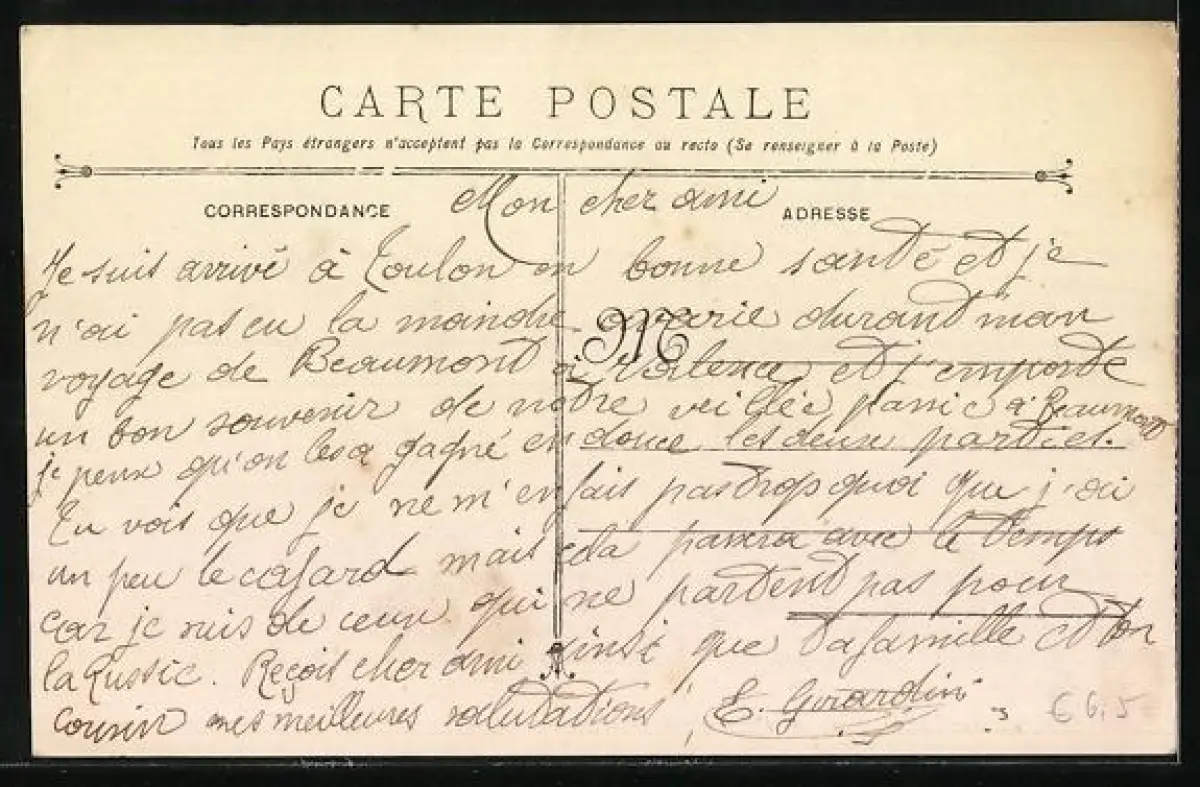 CARTE POSTALE
Tous les Pays étrangers n'acceptent pas la Correspondance au recto (Se renseigner à la Poste)
CORRESPONDANCE
ADRESSE
M
Mon cher ami
Je suis arrivé à Toulon en bonne santé et je
n'ai pas eu la moindre avarie durant mon
voyage de Beaumont à Valence et j'emporte
un bon souvenir de notre veillée passée à Beaumont
je peux qu'on les a gagné en douce les deux parties.
Tu vois que je ne m'en fais pas trop quoi que j'ai
un peu le cafard mais cela passera avec le temps
car je suis de ceux qui ne partent pas pour
la Russie. Reçois cher ami ainsi que ta famille et ton
cousin mes meilleures salutations
E. Girardin
€ 6,5